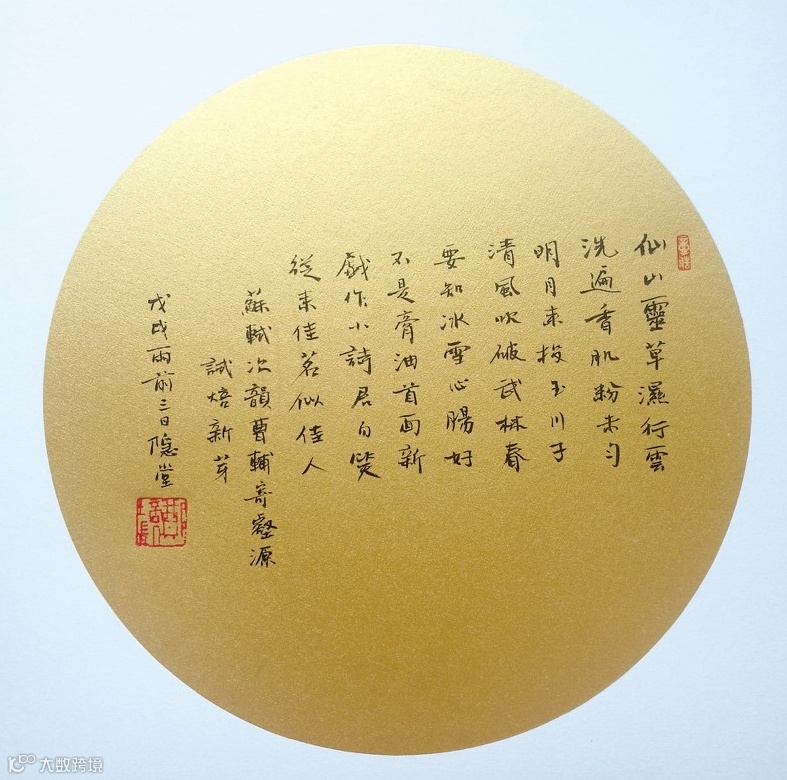 仙山靈草濕行雲
洗遍香肌粉未勻
明月來投玉川子
清風吹破武林春
要知冰雪心腸好
不是膏油首面新
戲作小詩君勿笑
從來佳茗似佳人
蘇軾次韻曹輔寄壑源
試焙新芽
戊戌雨前三日隱堂
大数跨境